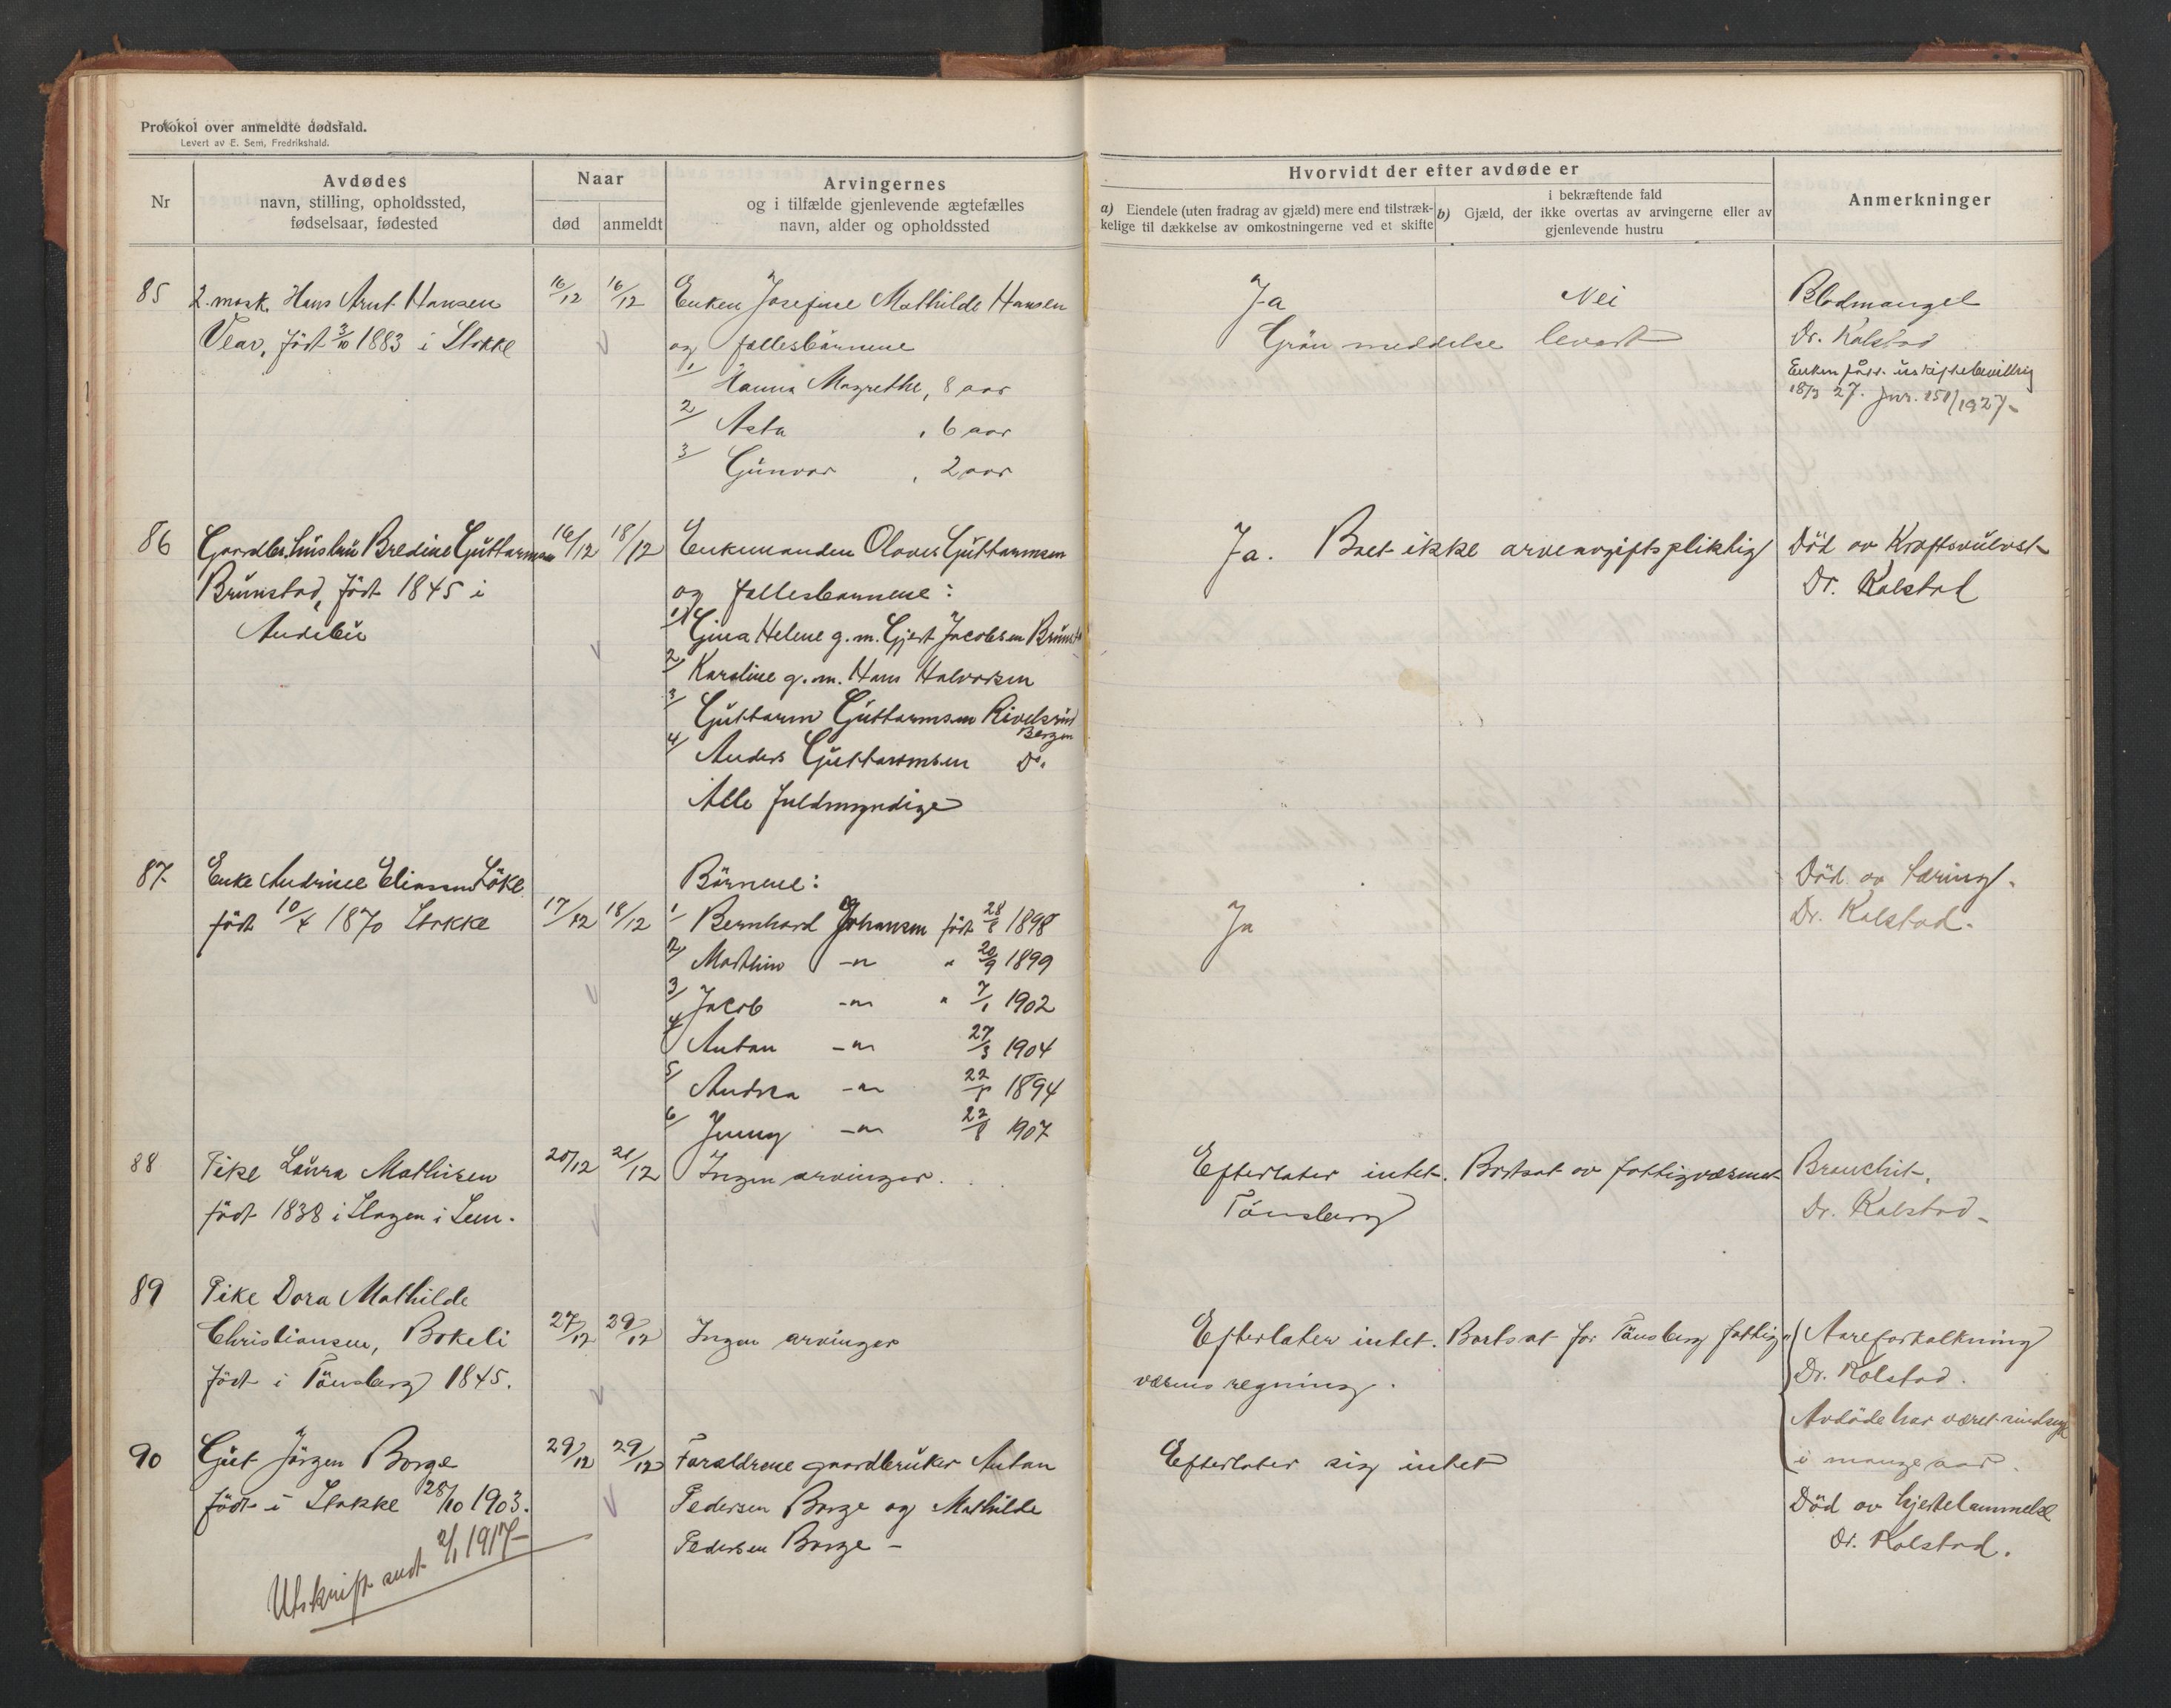 Protokol over anmeldte dødsfald.
Levert av E. Sem, Fredrikshald.
Nr
Avdødes
navn, stilling, opholdssted,
fødselsaar, fødested
Naar
død
anmeldt
Arvingernes
og i tilfælde gjenlevende ægtefælles
navn, alder og opholdssted
Hvorvidt der efter avdøde er
a) Eiendele (uten fradrag av gjæld) mere end tilstræk-
kelige til dækkelse av omkostningerne ved et skifte
i bekræftende fald
b) Gjæld, der ikke overtas av arvingerne eller av
gjenlevende hustru
Anmerkninger
85
2. mask. Hans Arnt Hansen
Vear, født 3/10 1883 i Stokke
16/12
16/12
Enken Josefine Mathilde Hansen
og fællesbarnene
1/ Hanna Magrethe, 8 aar
2/ Asta , 6 aar
3/ Gunvor , 2 aar
Ja
Nei
Grøn meddelse levert
Blodmangel
Dr. Kolstad
Enken uskiftebevillig
18/3 27. Jnr. 151/1927-
86
Gaardbr. hustru Bredine Guttormsen
Brunstad, født 1845 i
Andebu
16/12
18/12
Enkemanden Olaves Guttormsen
og fællesbarnene:
1/ Gina Helene g.m. Gjert Jacobsen Brunst
2/ Karoline g.m. Hans Halvorsen
3/ Guttorm Guttormsen Rivelsrud
Bergen
4/ Anders Guttormsen Do.
Alle fuldmyndige
Ja. Boet ikke arveavgiftspliktig
Død av Kraftsvulst
Dr. Kolstad
87.
Enke Andrine Eliassen Løke
født 10/4 1870 Stokke
17/12
18/12
Børnene:
1/ Bernhard Johansen født 28/8 1898
2/ Mathias -"- " 20/9 1899
3/ Jacob -"- " 7/1 1902
4/ Anton -"- 27/3 1904
5/ Andrea -"- 22/5 1894
6/ Jenny -"- 22/8 1907
Ja
Død av tæring.
Dr. Kolstad.
88
Pike Laura Mathisen
født 1838 i Slagen i Sem.
20/12
21/12
Ingen arvinger.
Efterlater intet. Bortsat av fattigvæsenet
Tønsberg
Bronchit.
Dr. Kolstad-
89
Pike Dora Mathilde
Christiansen, Bokeli
født i Tønsberg 1845.
27/12
29/12
Ingen arvinger
Efterlater intet. Bortsat for Tønsberg fattig-
væsens regning.
Aareforkalkning
Dr. Kolstad.
Avdøde har været sindssyk
i mange aar.
90
Gut Jørgen Borge
født i Stokke 28/10 1903.
29/12
29/12
Forældrene gaardbruker Anton
Pedersen Borge og Mathilde
Pedersen Borge -
Efterlater sig intet
Død av hjertelammelse
Dr. Kolstad.
Utskrift sendt 2/1 1917-